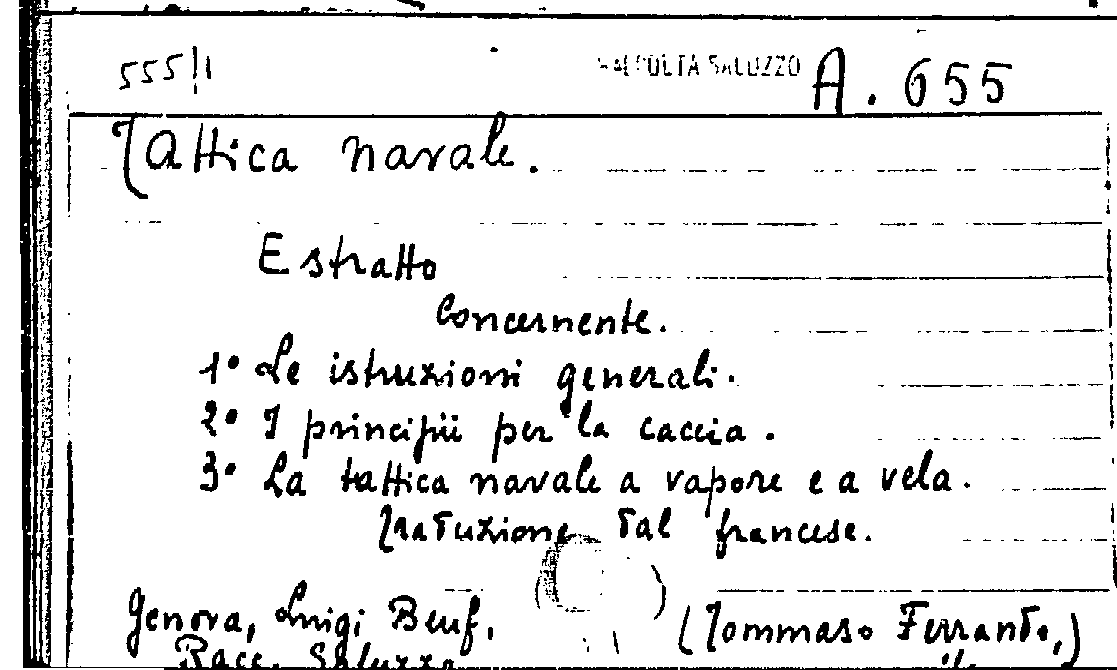 555/1 RACCOLTA SALUZZO A. 655
Tattica navale.
Estratto
concernente.
1° Le istruzioni generali.
2° I principii per la caccia.
3° La tattica navale a vapore e a vela.
Traduzione dal francese.
Genova, Luigi Beuf, (Tommaso Ferrando,)
Racc. Saluzzo